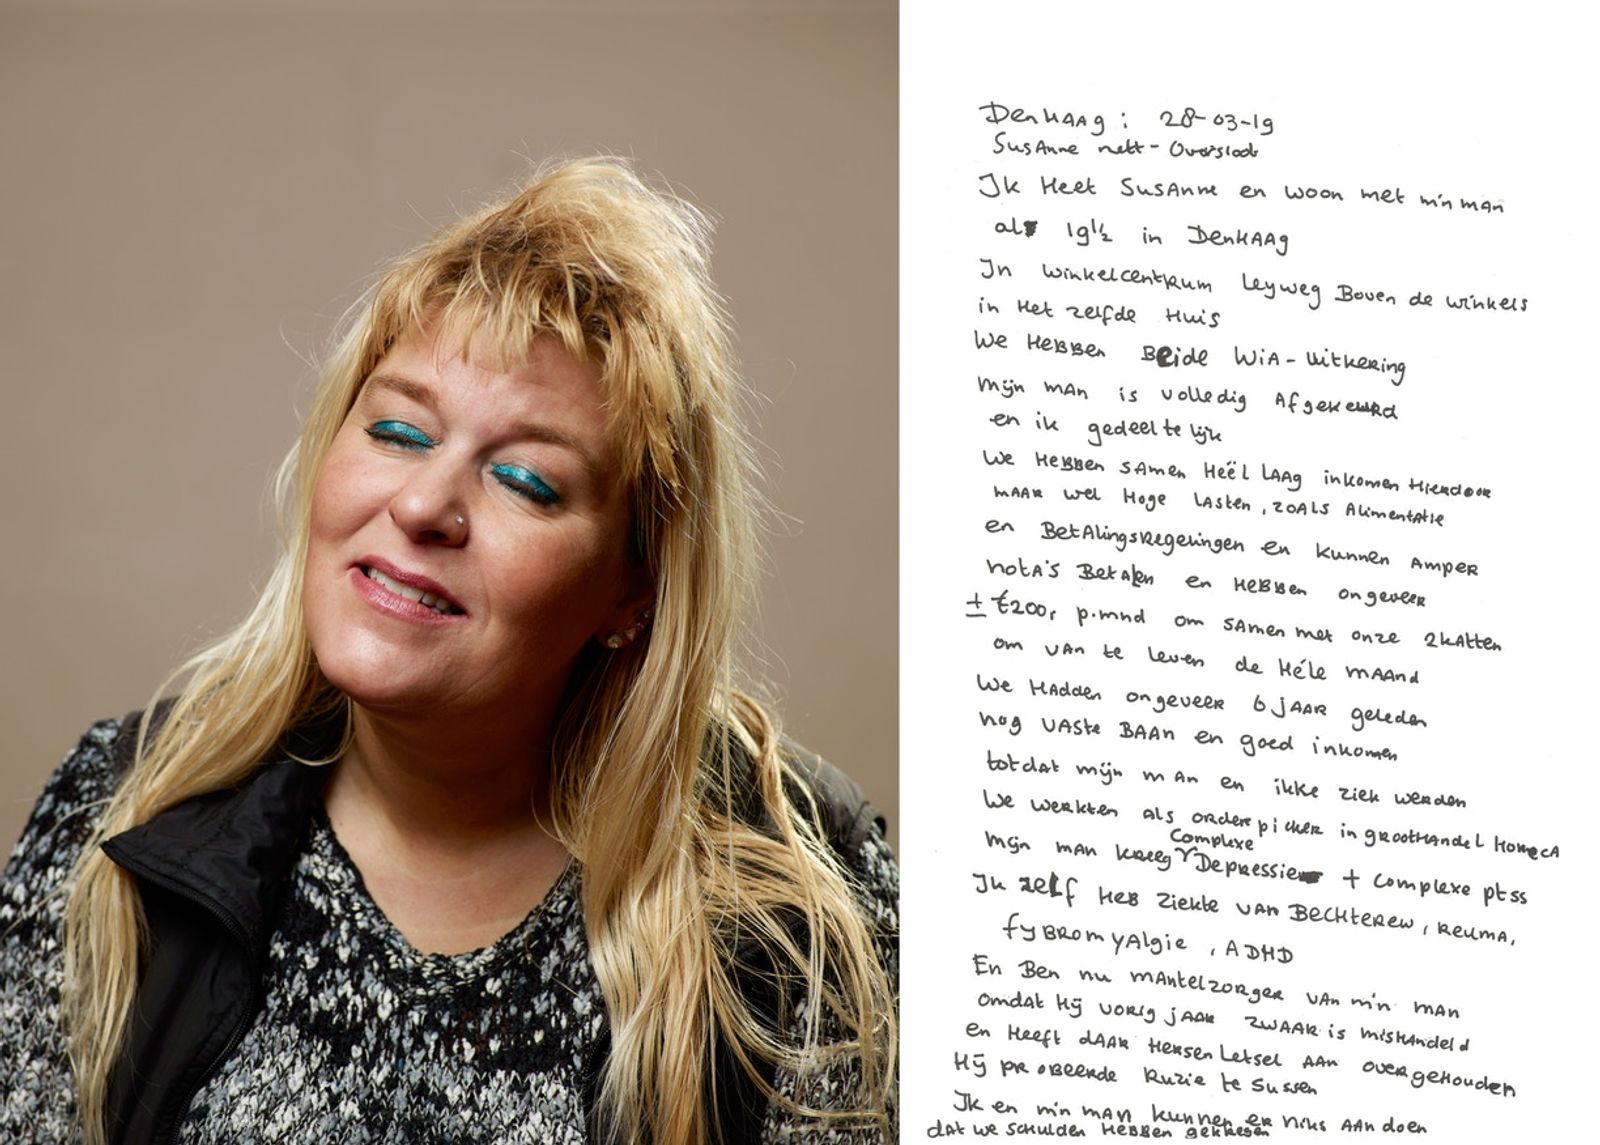 DenHAAg : 28-03-19
SusAnne nett - Overslodt
Ik Heet SusAnne en woon met m'n mAn
al 19 1/2 in DenHAAg
In winkelcentrum Leyweg Boven de winkels
in Het zelfde Huis
We HeBBen Beide WiA-uitkering
Mijn mAn is volledig Afgekeurd
en ik gedeeltelijk
We HeBBen sAmen Heël LAAg inkomen Hierdoor
mAAR wel Hoge LAsten, zoALs AlimentAtie
en BetAlingsRegelingen en kunnen Amper
notA's BetAlen en HeBBen ongeveer
± €200, p.mnd om sAmen met onze 2kAtten
om vAn te leven de Héle mAAnd
We HAdden ongeveer 6 jAAR geleden
nog vAste BAAn en goed inkomen
totdat mijn mAn en ikke ziek werden
We werkten als orderpicker in gRootHAndel HoRecA
Mijn mAn kreeg complexe Depressie + complexe ptss
Ik zelf HeB ziekte vAn BeCHterew, reumA,
fyBRomyAlgie, ADHD
En Ben nu mAntelzorger vAn m'n mAn
omdAt Hij vorig jAAR zwAAR is misHAndeld
en Heeft dAAR HersenLetsel AAn overgeHouden
Hij pRobeerde Ruzie te sussen
Ik en m'n mAn kunnen er niks AAn doen
dAt we scHulden HeBBen gekregen